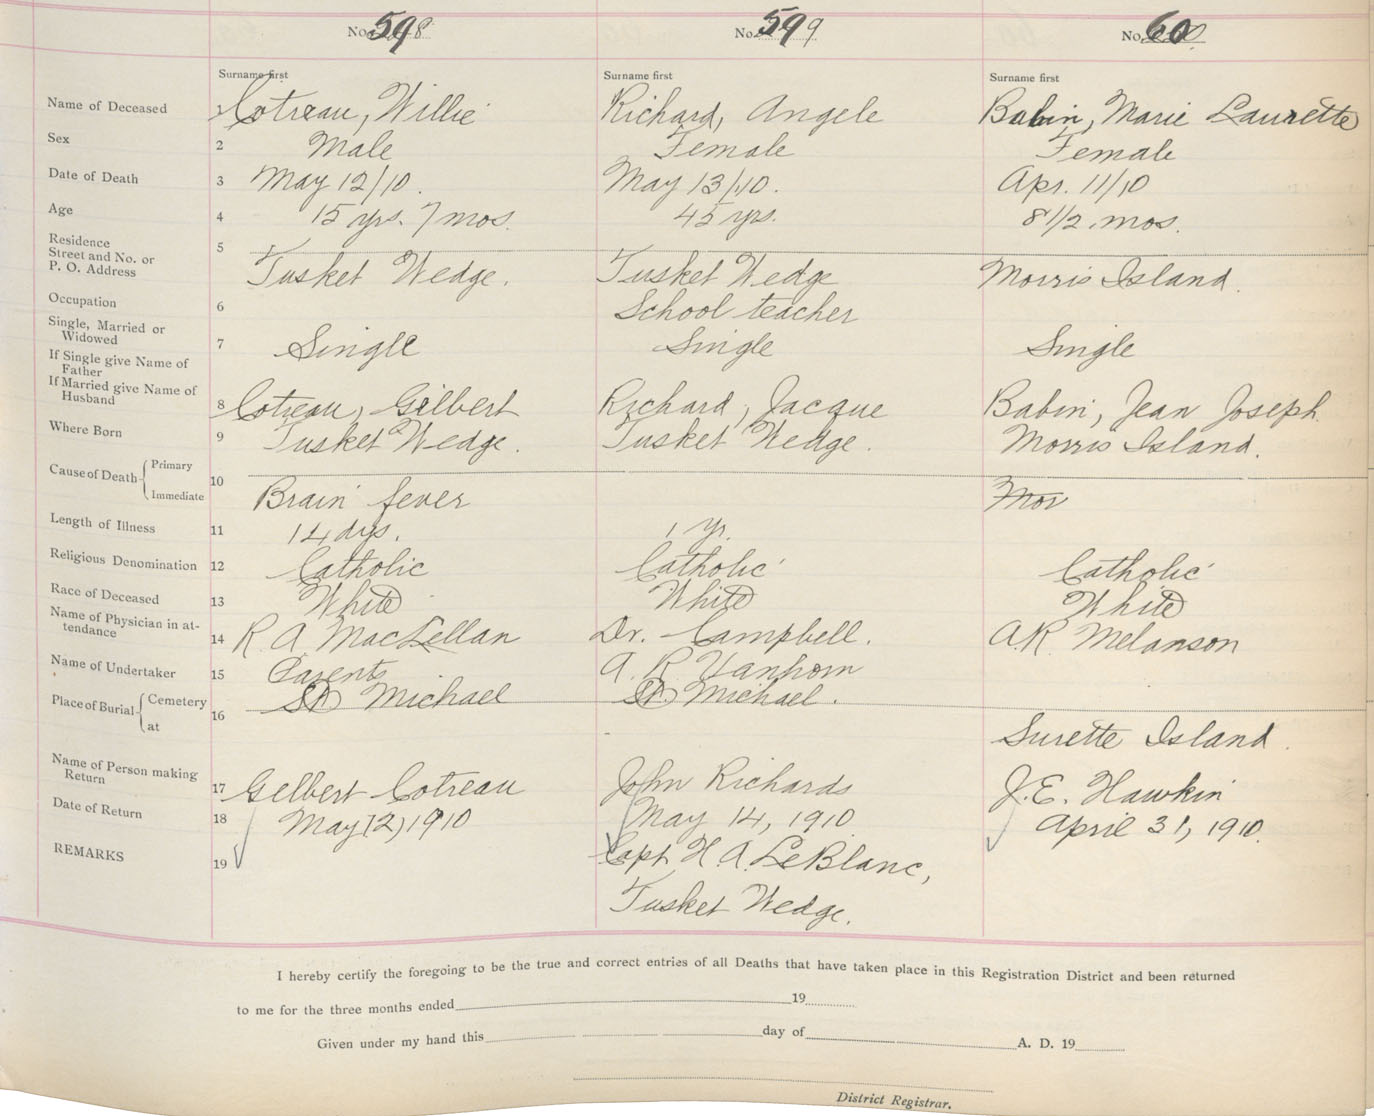 No. 598 No. 599 No. 600
Surname first Surname first Surname first
Name of Deceased 1 Cotreau, Willie Richard, Angele Babin, Marie Laurette
Sex 2 Male Female Female
Date of Death 3 May 12/10. May 13/10. Apr. 11/10
Age 4 15 yrs. 7 mos. 45 yrs. 8 1/2 mos.
Residence
Street and No. or
P. O. Address 5 Tusket Wedge. Tusket Wedge Morris Island.
Occupation 6 School teacher
Single, Married or
Widowed 7 Single Single Single
If Single give Name of
Father
If Married give Name of
Husband 8 Cotreau, Gilbert Richard, Jacque Babin, Jean Joseph
Where Born 9 Tusket Wedge. Tusket Wedge. Morris Island.
Cause of Death Primary
Immediate 10 Brain fever Mor
Length of Illness 11 14 dys. 1 yr.
Religious Denomination 12 Catholic Catholic Catholic
Race of Deceased 13 White White White
Name of Physician in at-
tendance 14 R. A. MacLellan Dr. Campbell. A.R. Melanson
Name of Undertaker 15 Parents A. R. Vanhorn
Place of Burial Cemetery St Michael St Michael.
at 16 Surette Island.
Name of Person making
Return 17 Gelbert Cotreau John Richards J. E. Hawkin
Date of Return 18 May 12, 1910 May 14, 1910 April 31, 1910.
REMARKS 19 Capt. H. A. LeBlanc,
Tusket Wedge.
I hereby certify the foregoing to be the true and correct entries of all Deaths that have taken place in this Registration District and been returned
to me for the three months ended 19
Given under my hand this day of A. D. 19
District Registrar.